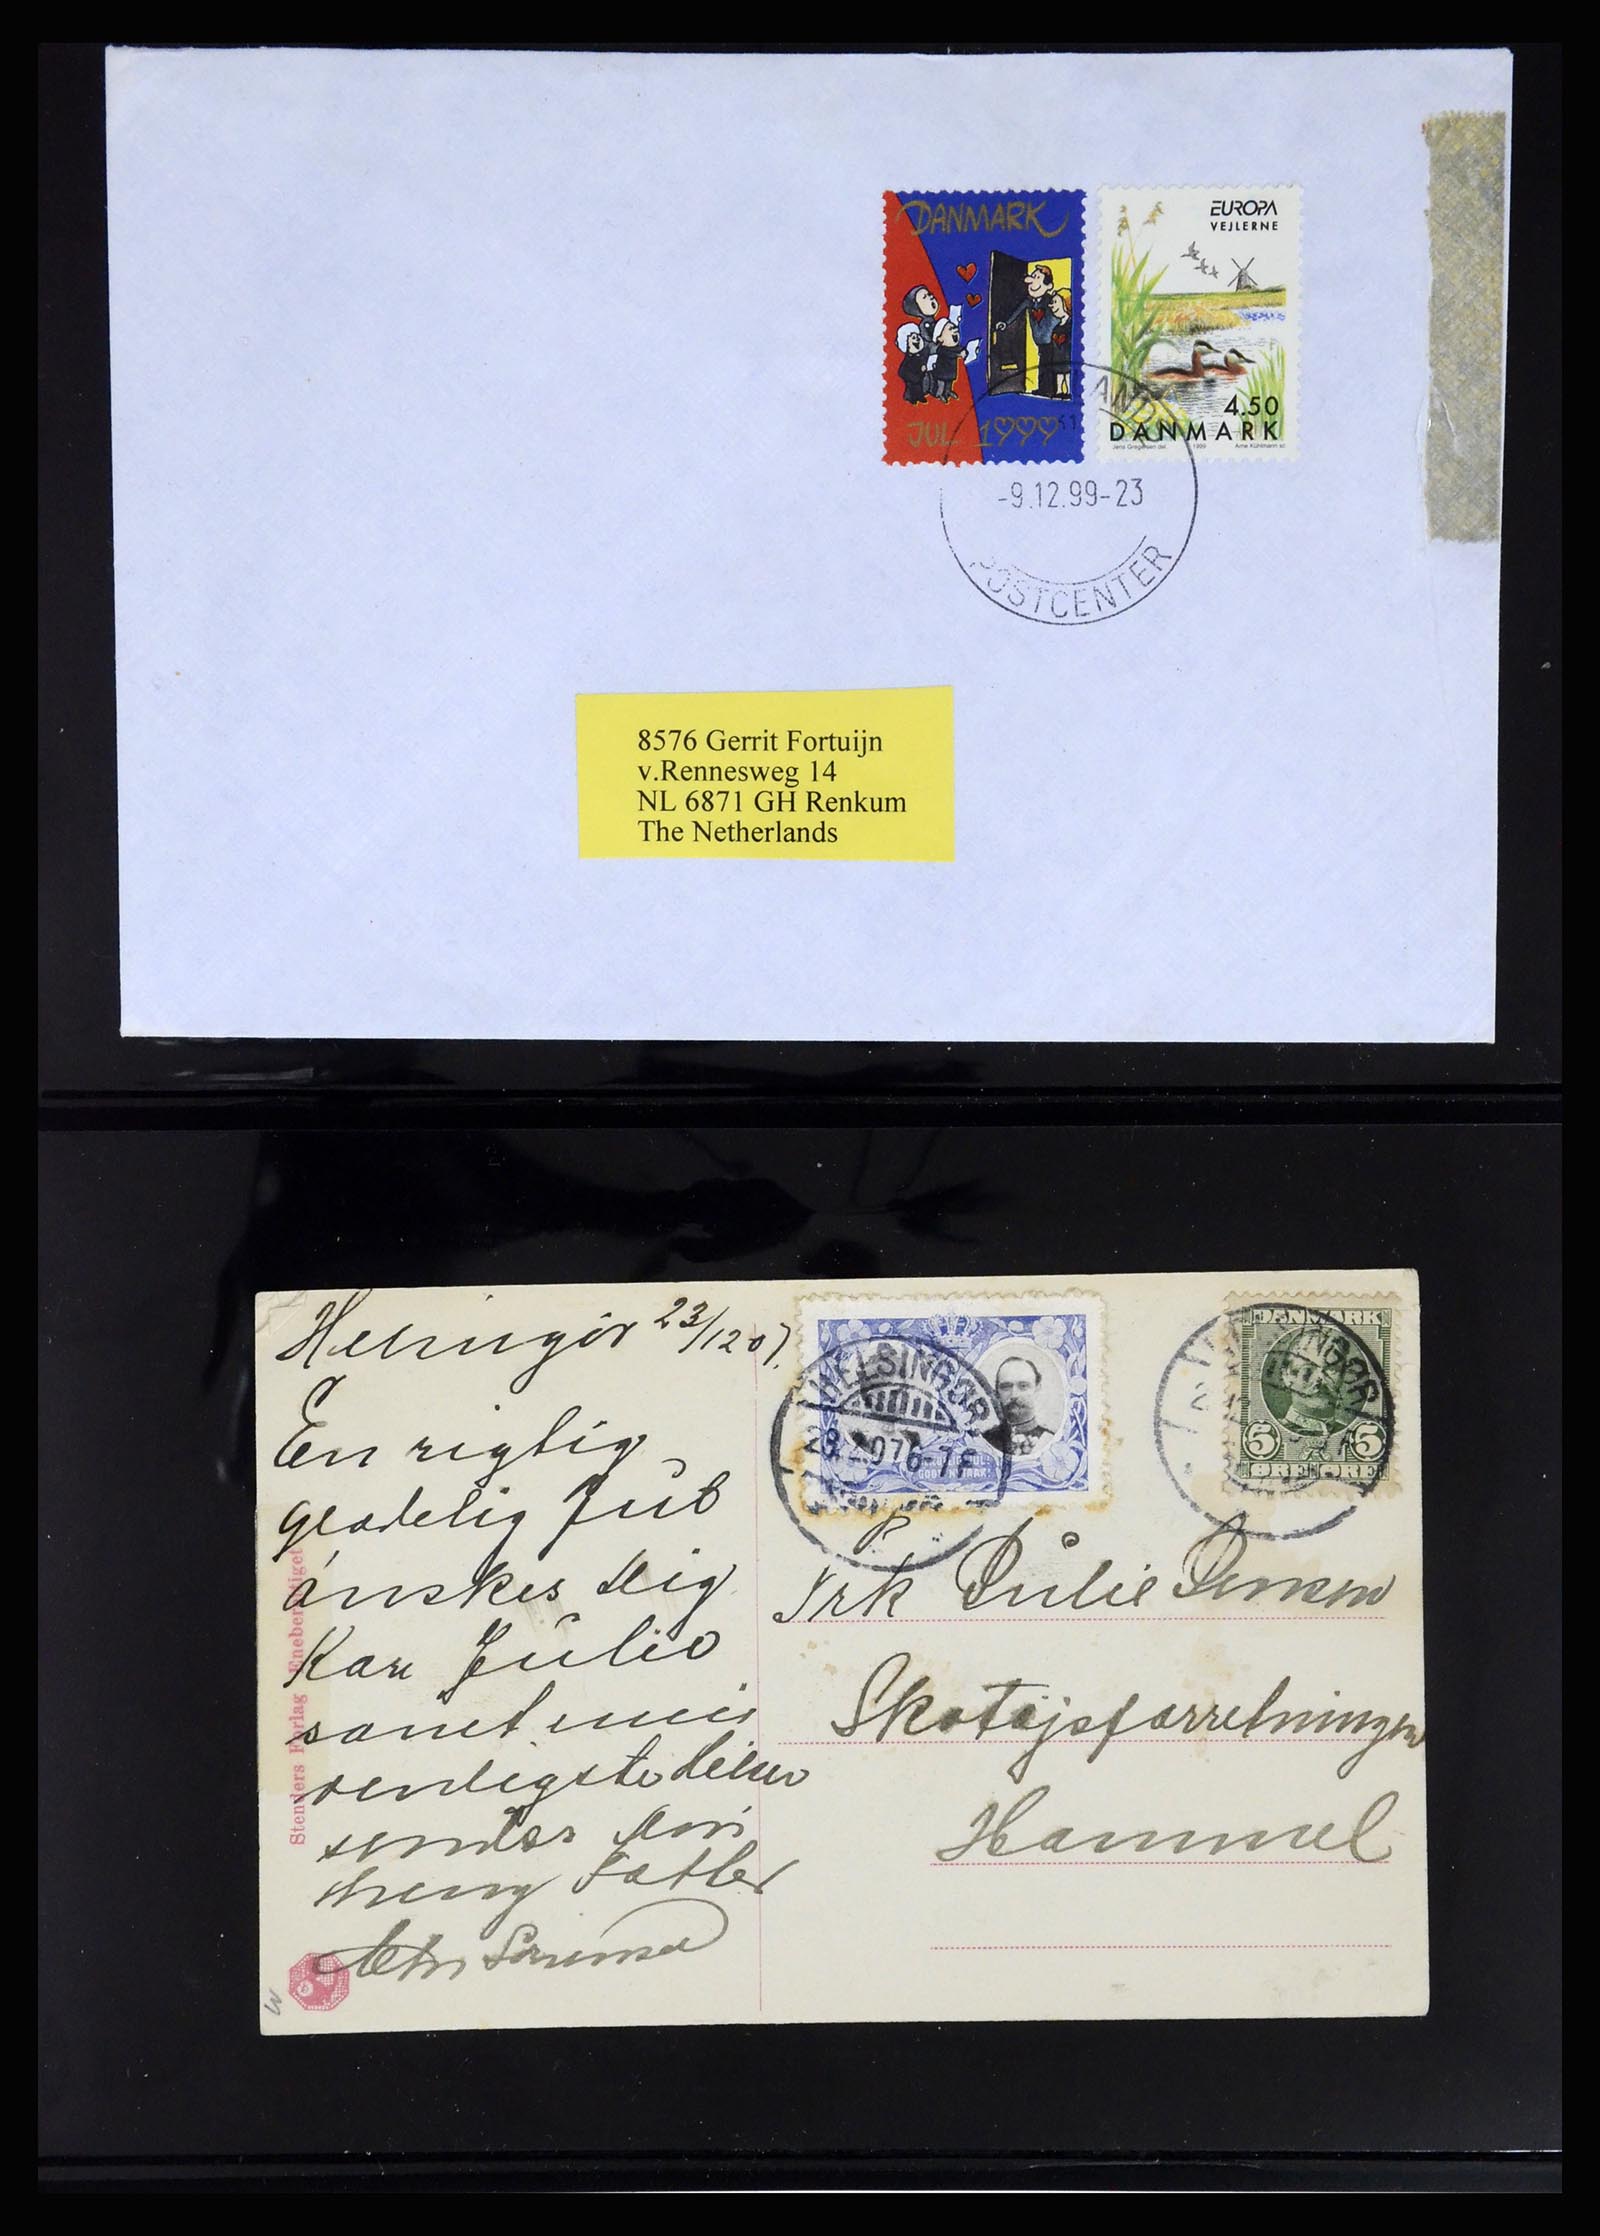 DANMARK
JUL 1999
EUROPA
VEJLERNE
4.50
DANMARK
Jens Gregersen del. 1999 Arne Kühlmann sc.
-9.12.99-23
POSTCENTER
8576 Gerrit Fortuijn
v.Rennesweg 14
NL 6871 GH Renkum
The Netherlands
Helsingör 23/12 07.
En rigtig
glædelig Jul
ønskes Dig
Kære Julie
samt min
venligste Hilsen
sender din
Fatter
Stenders Forlag Eneberettiget
HELSINGØR
DANMARK
5 5
ØRE ØRE
Frk Julie Jensen
Skotøjsforretningen
Hammel